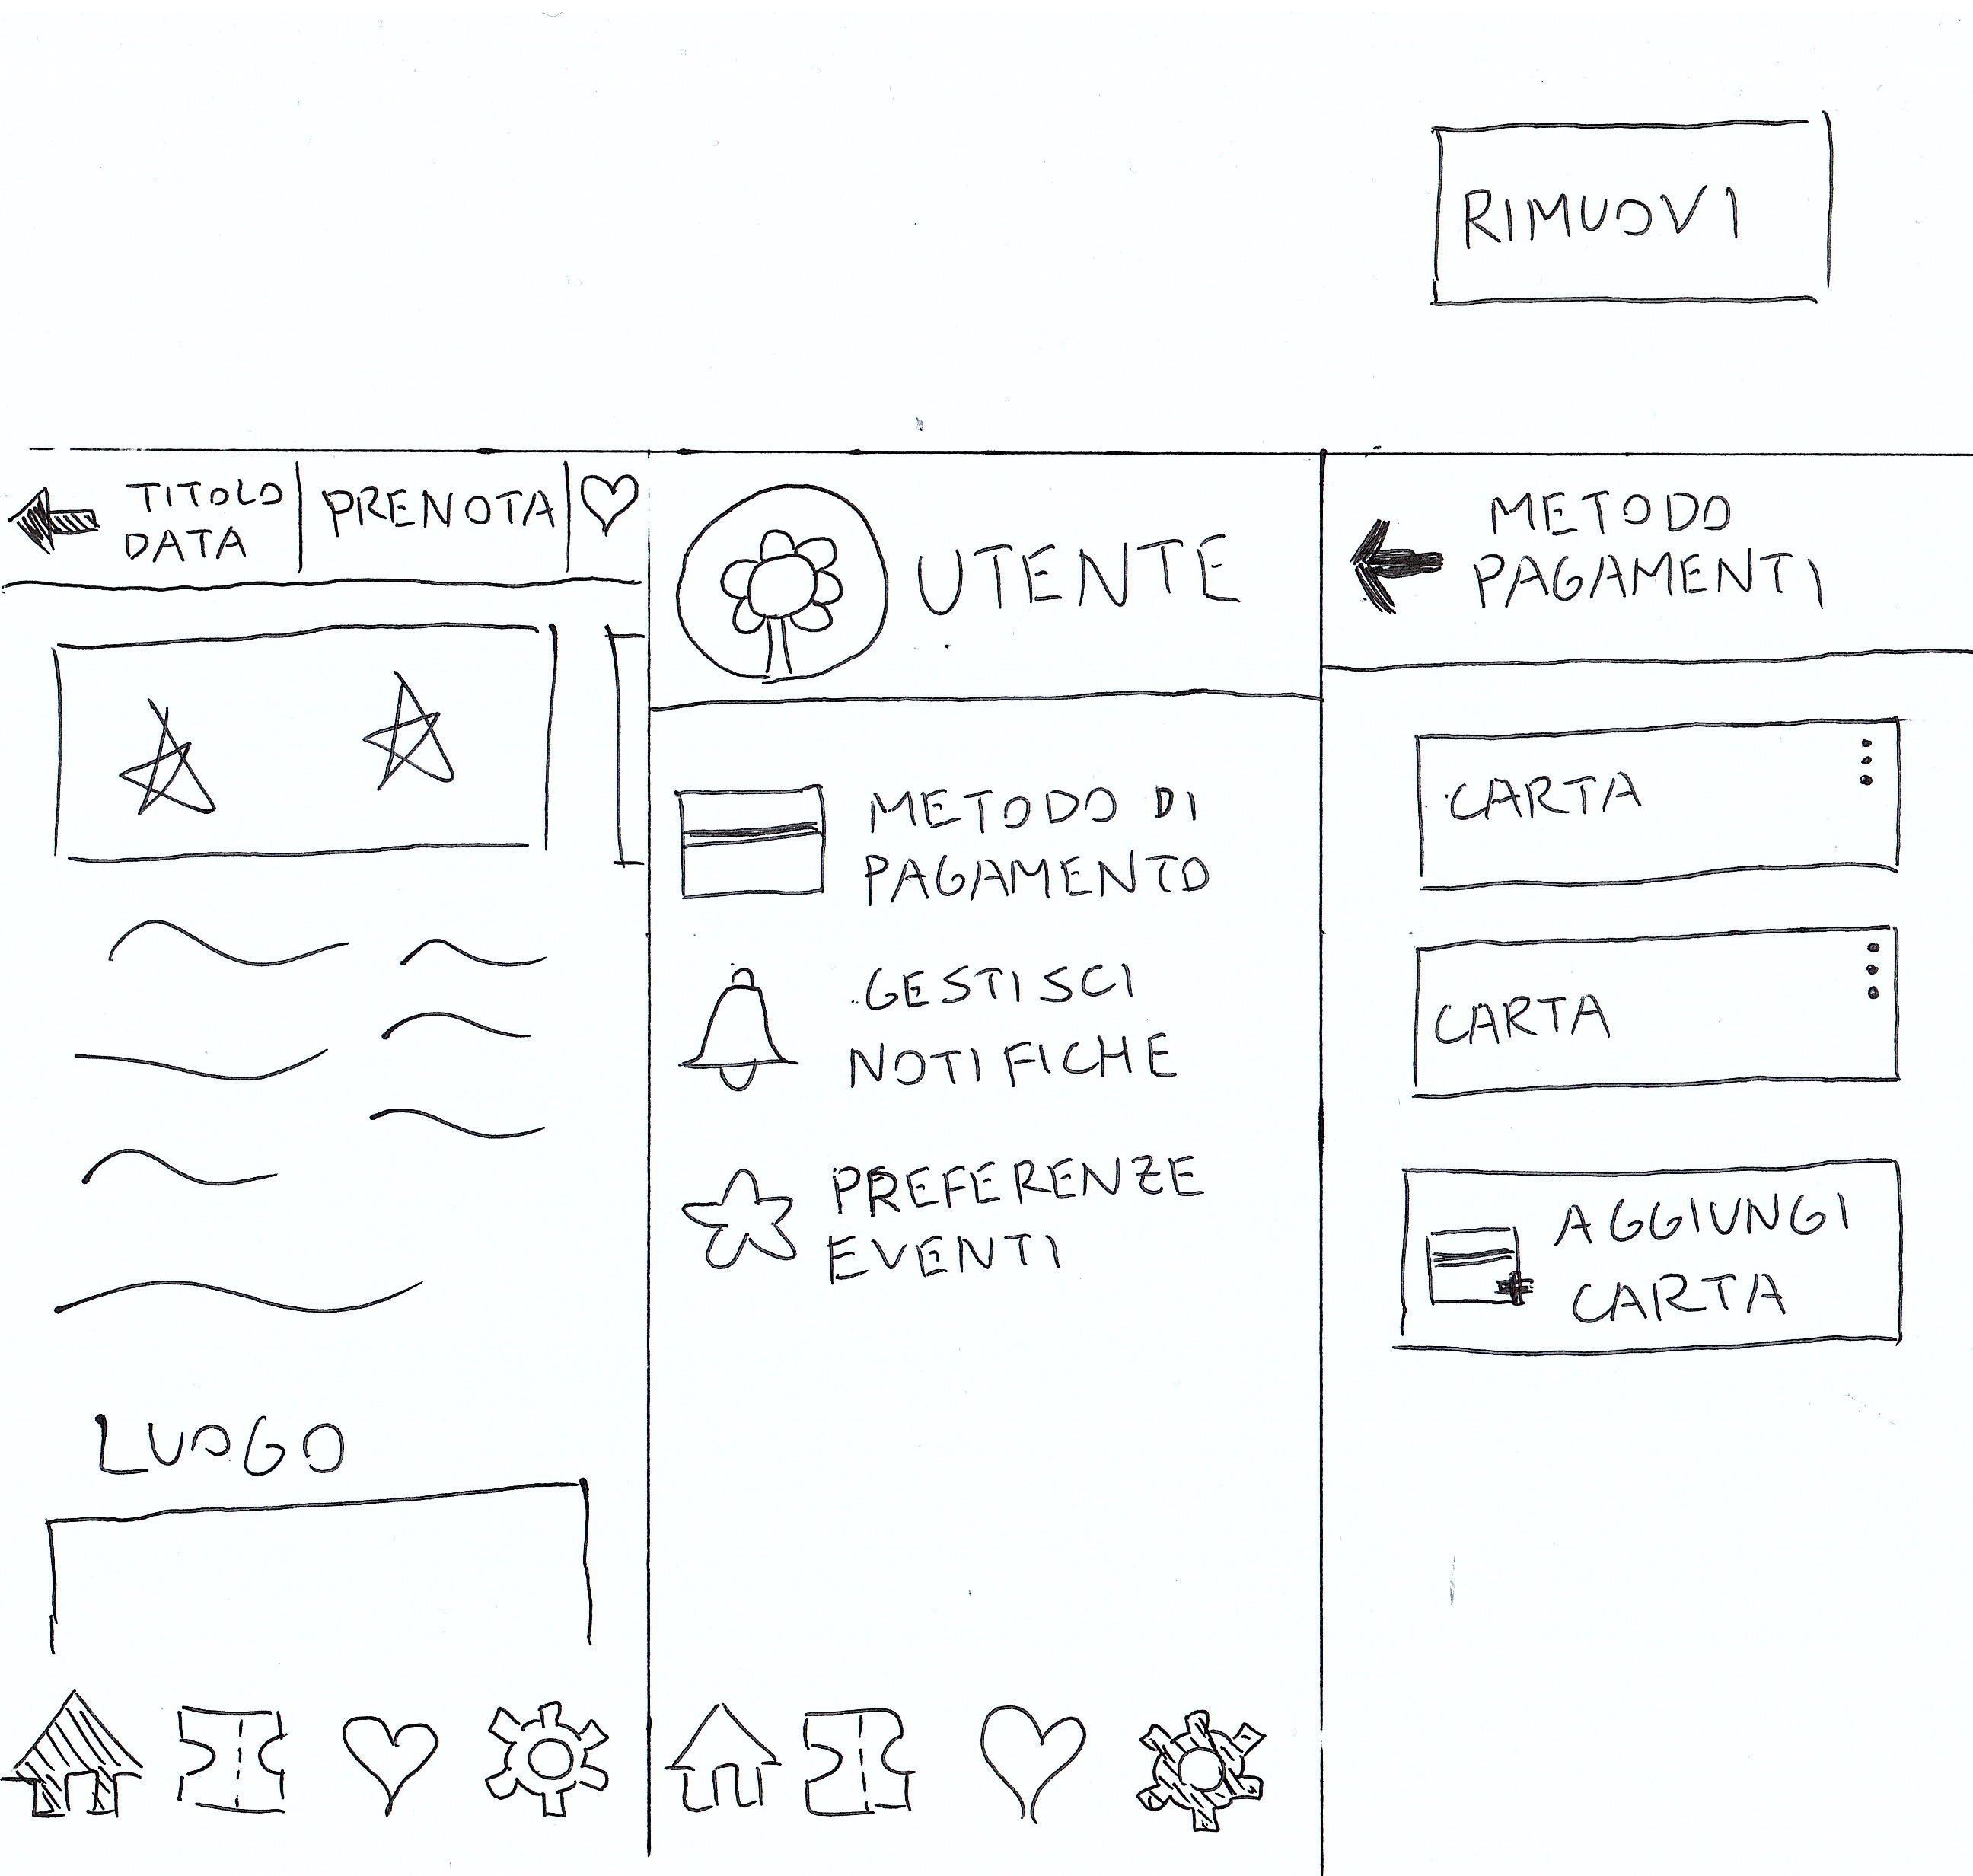 RIMUOVI
TITOLO
DATA
PRENOTA
LUOGO
UTENTE
METODO DI
PAGAMENTO
GESTISCI
NOTIFICHE
PREFERENZE
EVENTI
METODO
PAGAMENTI
CARTA
CARTA
AGGIUNGI
CARTA